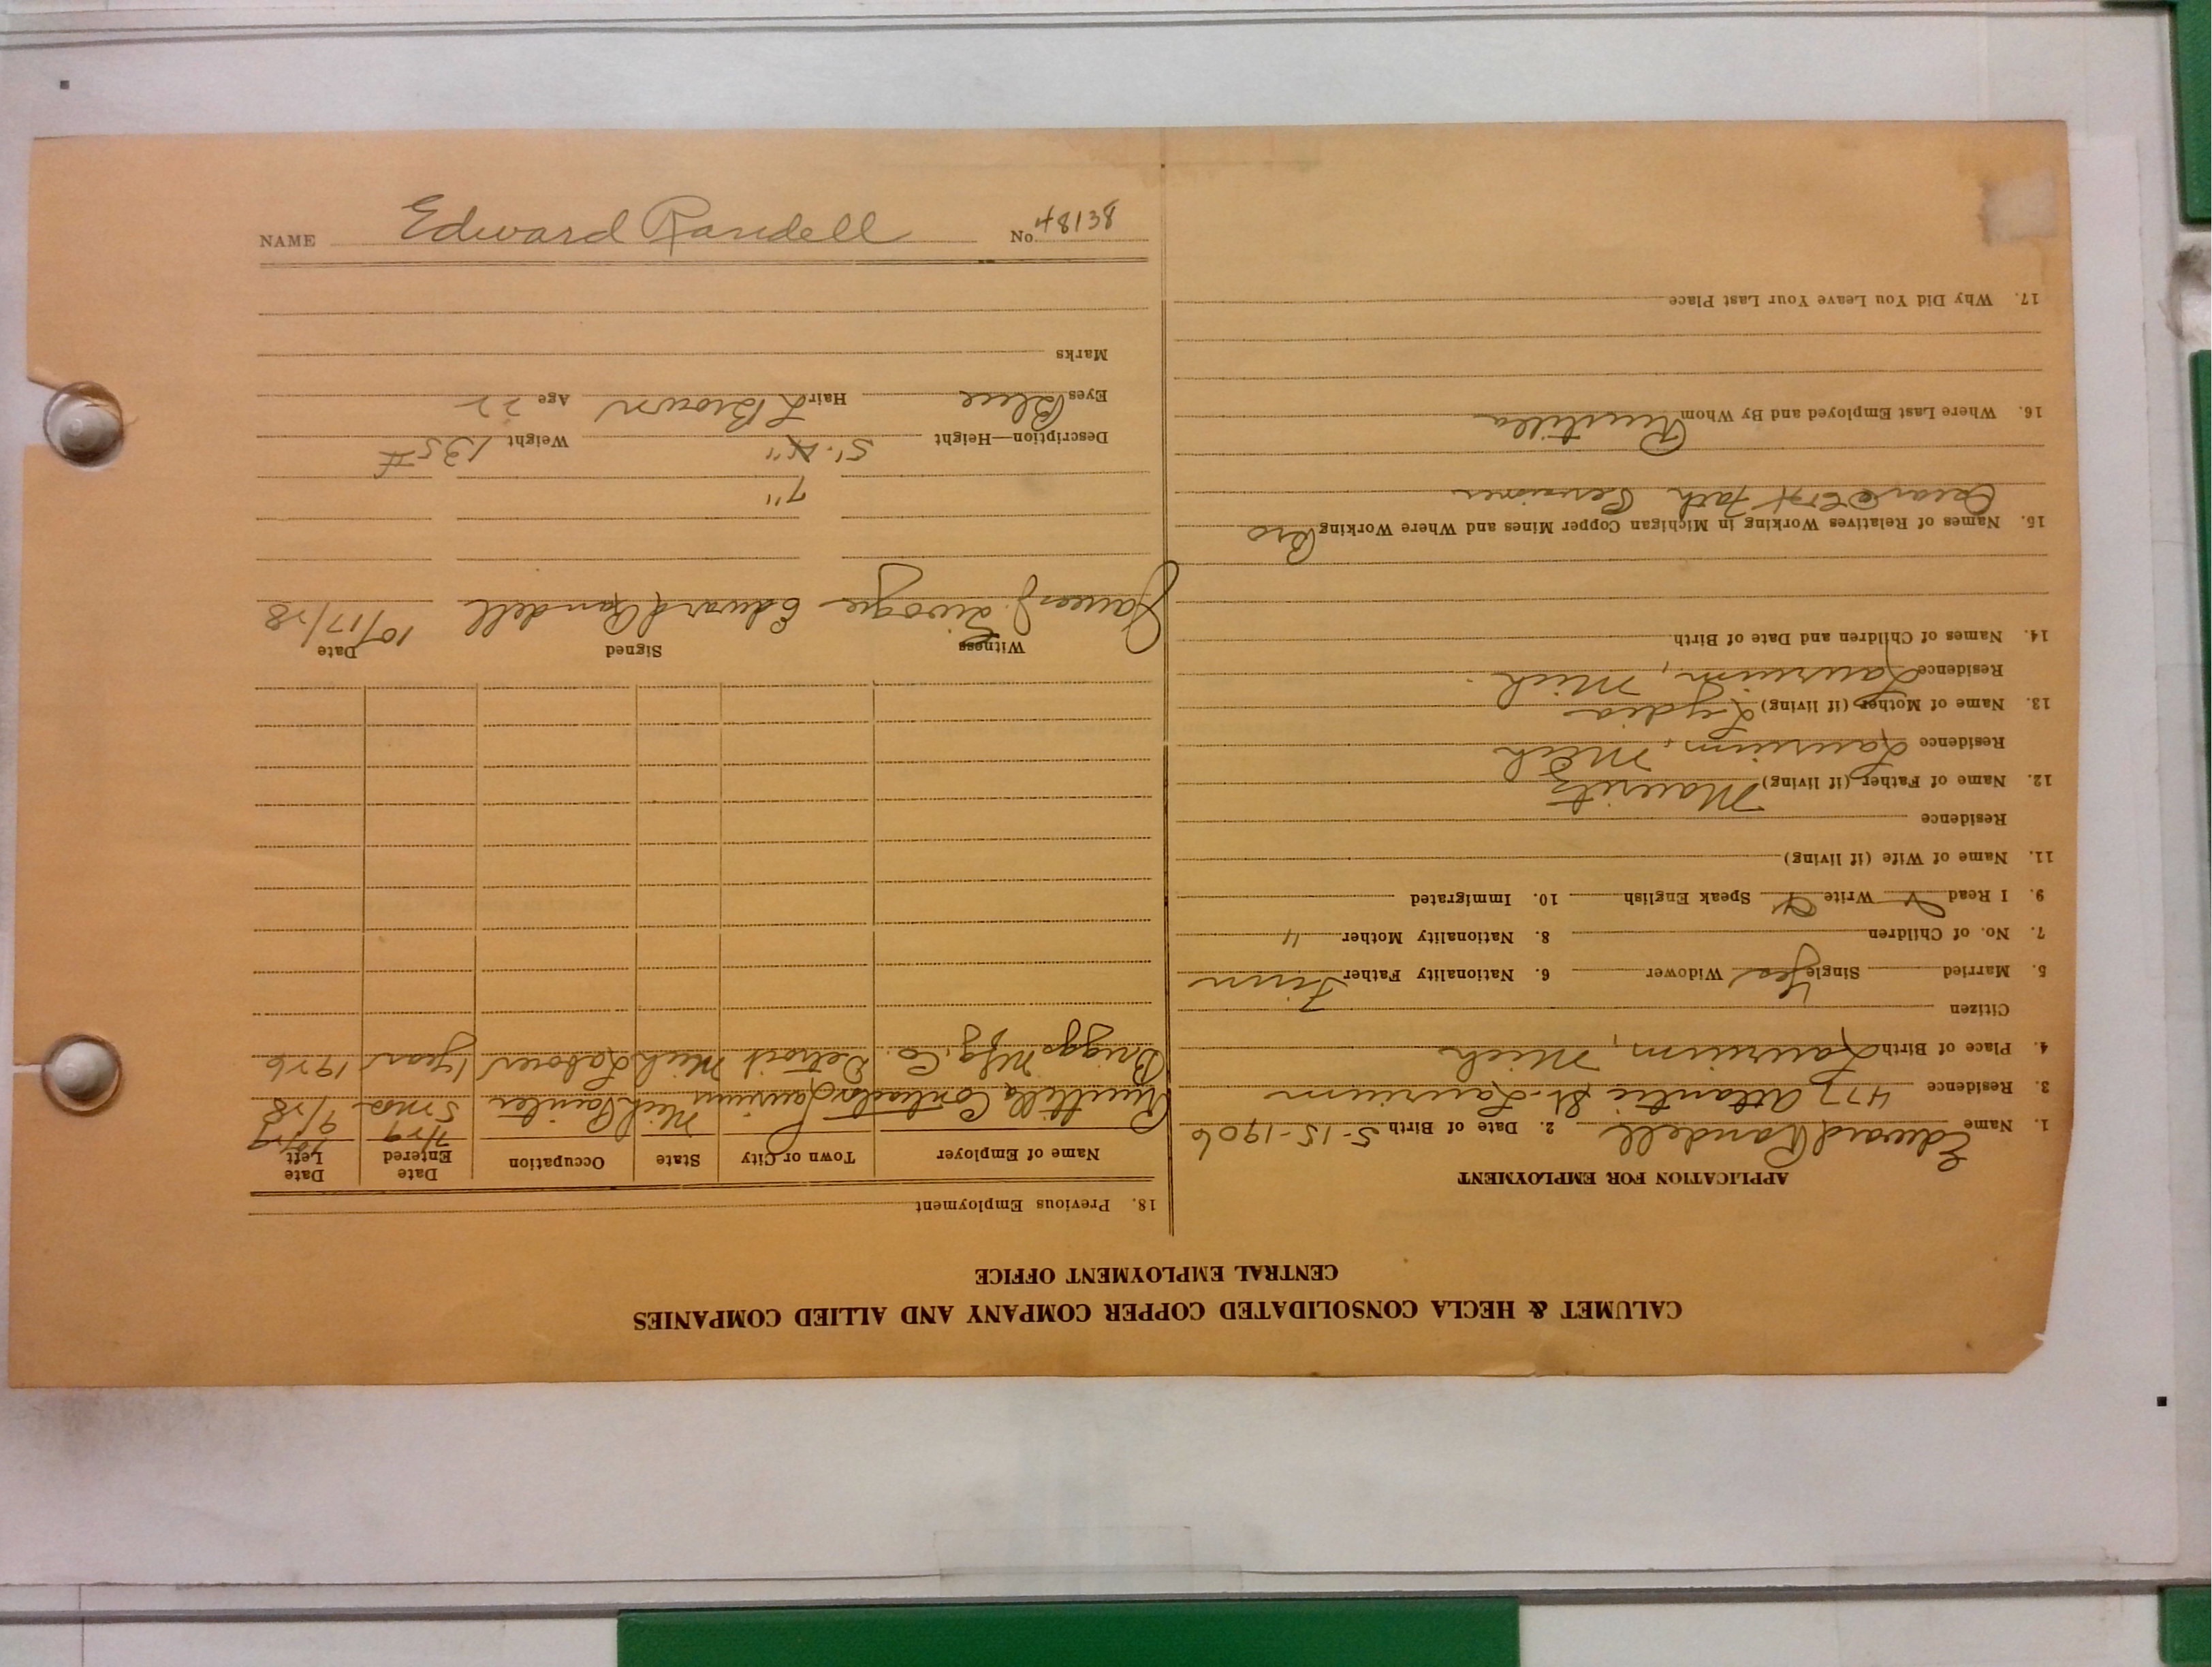 NAME Edward Randell No. 48138
CALUMET & HECLA CONSOLIDATED COPPER COMPANY AND ALLIED COMPANIES
CENTRAL EMPLOYMENT OFFICE
APPLICATION FOR EMPLOYMENT
1. Name Edward Randell 2. Date of Birth 5-15-1906
3. Residence 477 Atlantic St. Laurium
4. Place of Birth Laurium, Mich
Citizen
5. Married Single Yes Widower 6. Nationality Father Finn
7. No. of Children 8. Nationality Mother "
9. I Read Write Speak English 10. Immigrated
11. Name of Wife (if living)
Residence
12. Name of Father (if living) Mauritz
Residence Laurium, Mich
13. Name of Mother (if living) Lydia
Residence Laurium, Mich.
14. Names of Children and Date of Birth
15. Names of Relatives Working in Michigan Copper Mines and Where Working Bro
Oscar
16. Where Last Employed and By Whom Ruutila
17. Why Did You Leave Your Last Place
18. Previous Employment
Name of Employer Town or City State Occupation Date Entered Date Left
7/29
Ruutila Contractor Laurium Mich Painter 5 mos 9/28
Briggs Mfg. Co. Detroit Mich Laborer 1 year 1926
Witness Signed Date
James Edward Randell 10/17/28
7"
Description—Height 5'- Weight 135#
Eyes Blue Hair L Brown Age 22
Marks